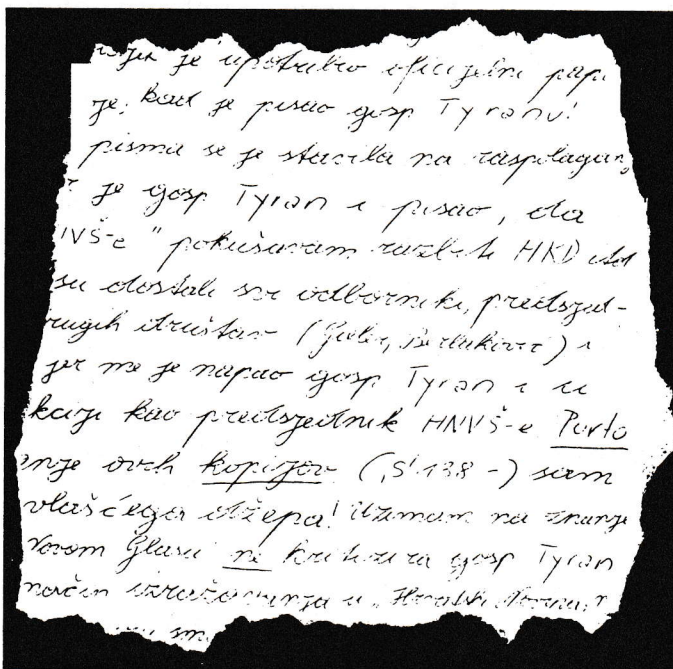 je upotrebio oficijelni papi
je, kad je pisao gosp Tyranu!
pisma se je stavila na raspolaganj
je gosp Tyran i pisao, da
NVŠ-e" pokušavam razbiti HKD itd
su dostali svi odborniki, predsjed-
rugih društav (                  ) i
jer me je napao gosp Tyran i u
kciji kao predsjednik HNVŠ-e Porto
enje ovih kopijov (,S' 138 -) sam
vlašćega džepa! Uzimam na znanje
Novom Glasu ne kritizira gosp Tyran
način izražavanja u „Hrvatski